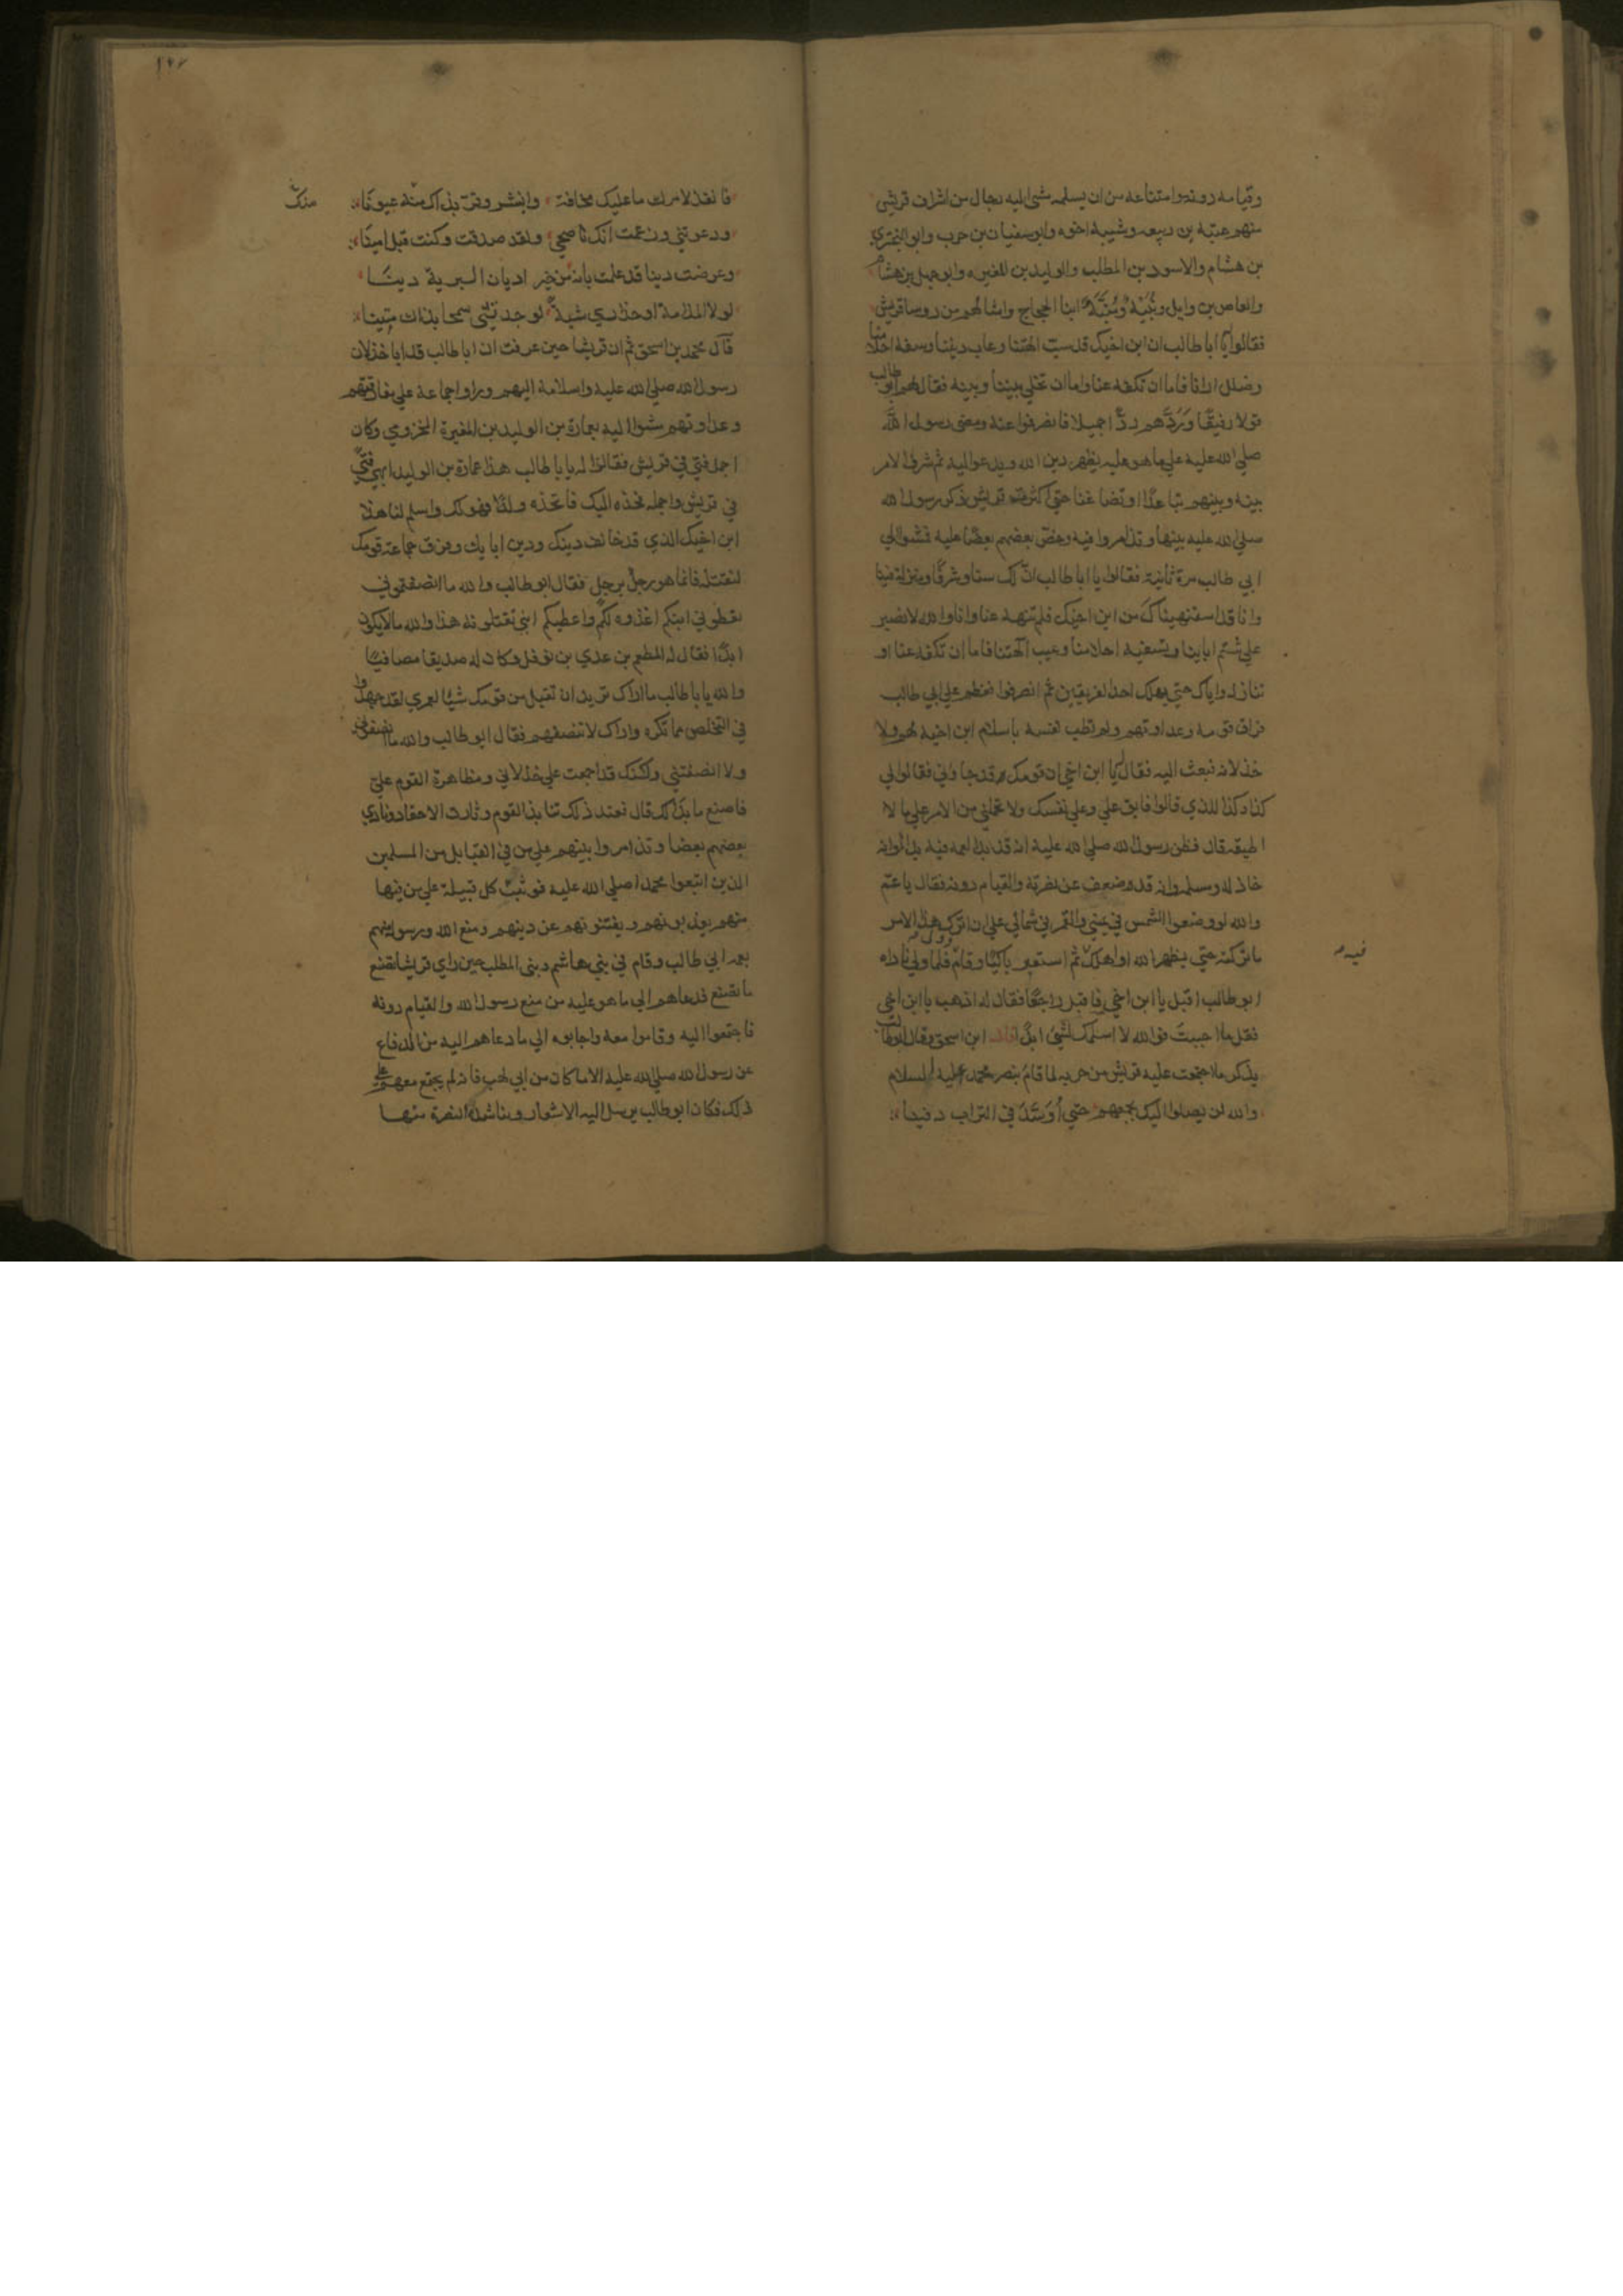 وقيامه دونه وامتناعه من ان يسلمه مشي اليه رجال من اشراف قريش
منهم عتبة بن ربيعه وشيبة اخوه وابو سفيان بن حرب وابو البختري
بن هشام والاسود بن المطلب والوليد بن المغيره وابو جهل بن هشام
والعاص بن وايل ونُبَيْهٌ ومُنَبَّهٌ ابنا الحجاج وامثالهم من روسا قريش
فقالوا يا ابا طالب ان ابن اخيك قد سبّ الهتنا وعاب ديننا وسفه احلامنا
وضلل ارانا فاما ان تكفه عنا واما ان تخلي بيننا وبينه فقال لهم ابو طالب
قولا رفيقًا وَرَدَّهم ردًّا جميلا فانصرفوا عنه ومضى رسول الله
صلي الله عليه علي ما هو عليه يظهر دين الله ويدعو اليه ثم شرى الامر
بينه وبينهم تباعدًا وتضاغنا حتي اكثرت قريش ذكر رسول الله
صلي الله عليه بينها وتذامروا فيه وحضّ بعضهم بعضًا عليه فمشوا الي
ابي طالب مرة ثانية فقالوا يا ابا طالب انّ لك سنا وشرفًا ومنزلة فينا
وانا قد استنهيناك من ابن اخيك فلم تنهه عنا وانا والله لا نصبر
علي شتم اباينا وتسفيه احلامنا وعيب الهتنا فاما ان تكفه عنا او
ننازله واياك حتي يهلك احد الفريقين ثم انصرفوا فعظم علي ابي طالب
فراق قومه وعداوتهم ولم تطب نفسه باسلام ابن اخيه لهم ولا
خذلانه فبعث اليه فقال يا ابن اخي ان قومك قد جاوني فقالوا لي
كذا وكذا للذي قالوا فابق عليّ وعلي نفسك ولا تحملني من الامر علي ما لا
اطيقه قال فظن رسول الله صلي الله عليه انه قد بدا لعمه فيه بدا وانه
خاذله ومسلمه وانه قد ضعف عن نصرته والقيام دونه فقال يا عمّ
والله لو وضعوا الشمس في يميني والقمر في شمالي علي ان اترك هذا الامر
ما تركته حتي يظهره الله او اهلك ثم استعبر باكيًا وقام فلما ولي ناداه
فيه
ابو طالب اقبل يا ابن اخي فاقبل راجعًا فقال له اذهب يا ابن اخي
فقل ما احببت فوالله لا اسلمك لشيء ابدًا قال ابن اسحق وقال ابو طالب
يذكر ما اجمعت عليه قريش من حربه لما قام بنصر محمد عليه السلام
والله لن يصلوا اليك بجمعهم حتي اُوَسَّدَ في التراب دفينا
فانفذ لامرك ما عليك مخافة وابشر وقرّ بذاك منه عيونًا
منك
ودعوتني وزعمت انك ناصحي ولقد صدقت وكنت قبل امينًا
وعرضت دينا قد علمت بانه من خير اديان البرية دينًا
لولا الملامة او حذاري سُبةً لوجدتني سمحا بذاك متينا
قال محمد بن اسحق ثم ان قريشا حين عرفت ان ابا طالب قد ابا خذلان
رسول الله صلي الله عليه واسلامه اليهم وراوا اجماعه علي مفارقتهم
وعداوتهم مشوا اليه بعمارة بن الوليد بن المغيرة المخزومي وكان
اجمل فتي في قريش فقالوا له يا ابا طالب هذا عمارة بن الوليد ابهى فتى
في قريش واجمله فخذه اليك فاتخذه ولدًا فهو لك واسلم لنا هذا
ابن اخيك الذي قد خالف دينك ودين ابايك وفرق جماعة قومك
لنقتله فانما هو رجلٌ برجل فقال ابو طالب والله ما انصفتموني
تعطوني ابنكم اغذوه لكم واعطيكم ابني تقتلونه هذا والله ما لا يكون
ابدًا فقال له المطعم بن عدي بن نوفل وكان له صديقا مصافيًا
والله يا ابا طالب ما اراك تريد ان تقبل من قومك شيًا لعمري لقد جهدوا
في التخلص مما تكره واراك لا تنصفهم فقال ابو طالب والله ما انصفوني
ولا انصفتني ولكنك قد اجمعت علي خذلاني ومظاهرة القوم عليّ
فاصنع ما بدا لك قال فعند ذلك تنابذ القوم وثارت الاحقاد ونادي
بعضهم بعضا وتذامروا بينهم علي من في القبايل من المسلمين
الذين اتبعوا محمدا صلي الله عليه فوثبت كل قبيلة علي من فيها
منهم يعذبونهم ويفتنونهم عن دينهم ومنع الله ورسوله منهم
بعمه ابي طالب وقام في بني هاشم وبني المطلب حين راي قريشا تصنع
ما تصنع فدعاهم الي ما هو عليه من منع رسول الله والقيام دونه
فاجتمعوا اليه وقاموا معه واجابوه الي ما دعاهم اليه من الدفاع
عن رسول الله صلي الله عليه الا ما كان من ابي لهب فانه لم يجتمع معهم علي
ذلك فكان ابو طالب يرسل اليه الاشعار ويناشده النصرة منها